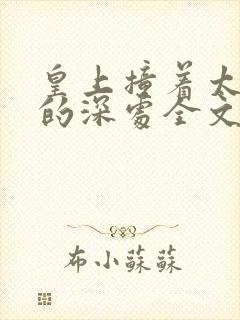 皇上撞着太
的深处全文
布小蘇蘇